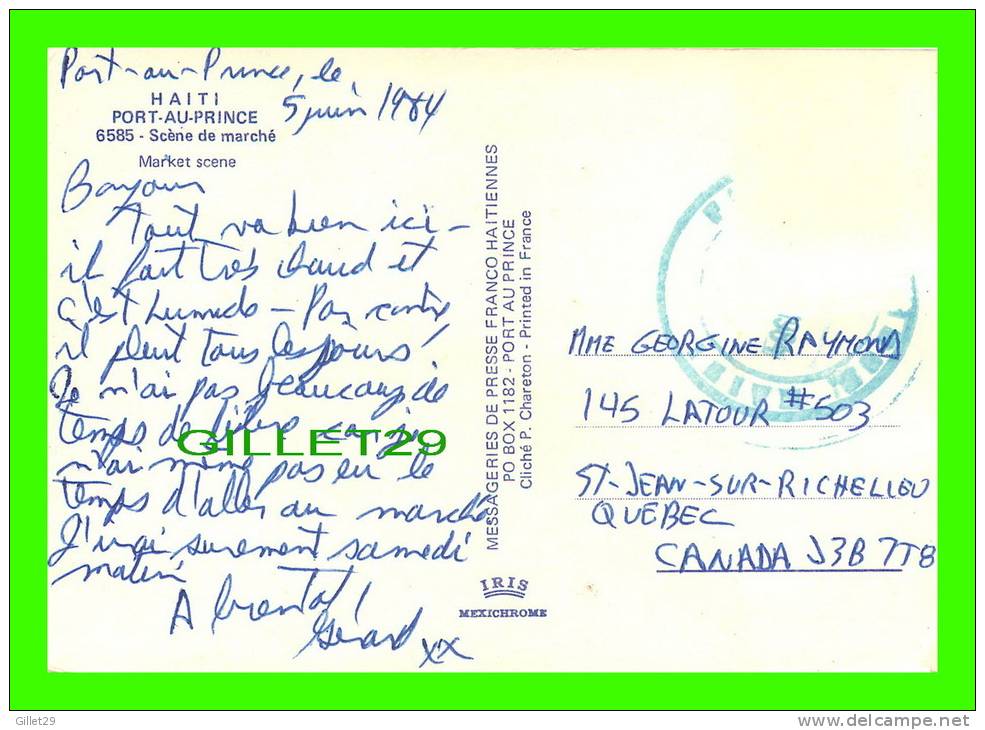 Port-au-Prince, le
5 juin 1984
HAITI
PORT-AU-PRINCE
6585 - Scène de marché
Market scene
Bonjour
Tout va bien ici -
il fait très chaud et
c'est humide - Par contre
il pleut tous les jours!
Je n'ai pas beaucoup de
temps de libre car je
n'ai même pas eu le
temps d'aller au marché
J'irai surement samedi
matin
A bientot!
Gérard xx
GILLET29
MESSAGERIES DE PRESSE FRANCO HAITIENNES
PO BOX 1182 - PORT AU PRINCE
Cliché P. Chareton - Printed in France
IRIS
MEXICHROME
MME GEORGINE RAYMOND
145 LATOUR #503
ST-JEAN-SUR-RICHELIEU
QUÉBEC
CANADA J3B 7T8
Gillet29
www.delcampe.net